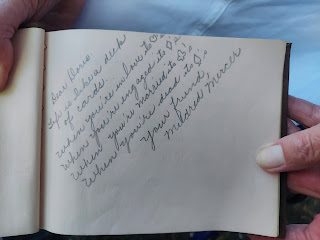 Dear Doris,
Life is like a deck
of cards.
When you're in love its ♡'s
When you're engaged its ♢'s
When you're married its ♧'s
When you're dead its ♤'s
Your friend,
Mildred Mercer